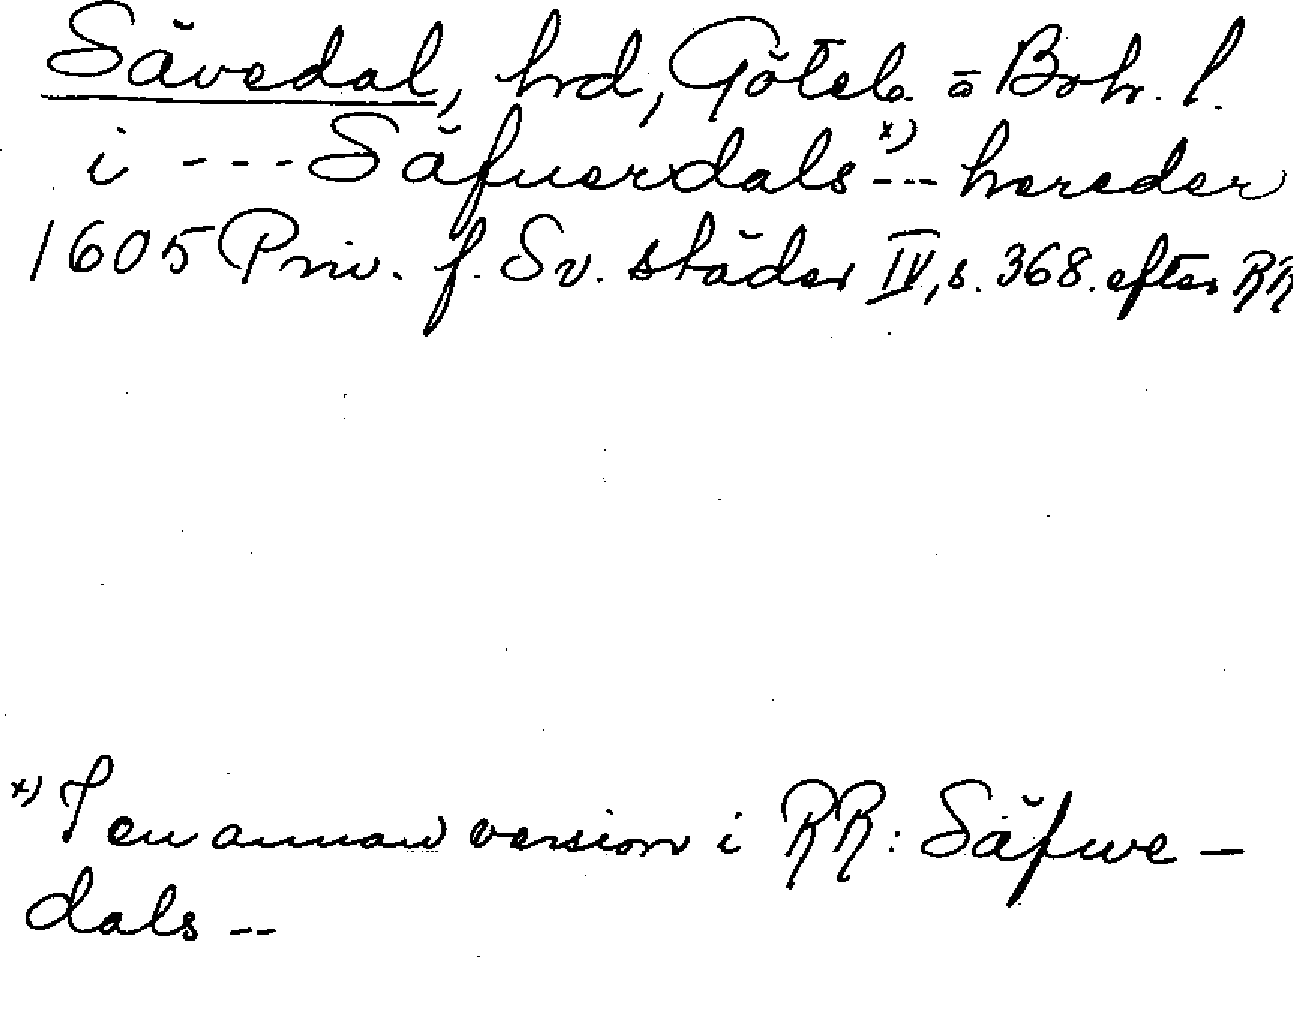 Sävedal, hrd, Göteb. o Boh. l.
i --- Säfuerdals x) --- hereder
1605 Priv. f. Sv. städer IV, s. 368. efter RR
x) I en annan version i RR: Säfwe-
dals --